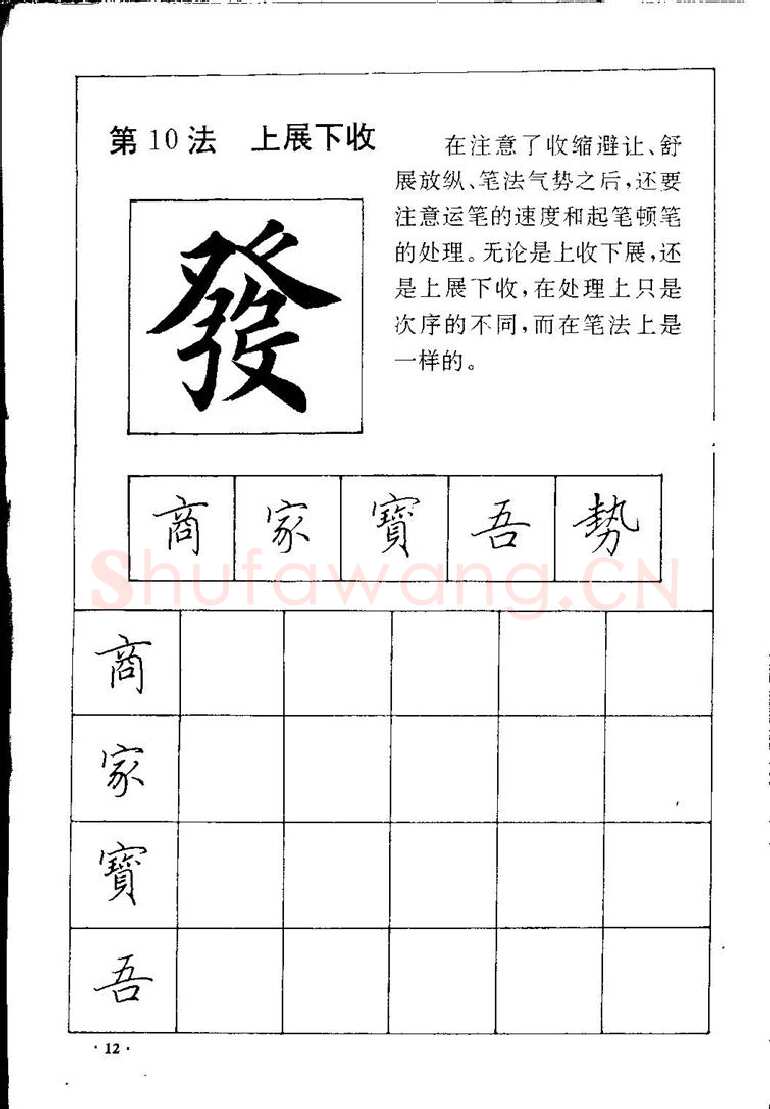 第10法 上展下收
在注意了收缩避让、舒
展放纵、笔法气势之后,还要
注意运笔的速度和起笔顿笔
的处理。无论是上收下展,还
是上展下收,在处理上只是
次序的不同,而在笔法上是
一样的。
發
商 家 寶 吾 勢
Shufawang.CN
商
家
寶
吾
·12·